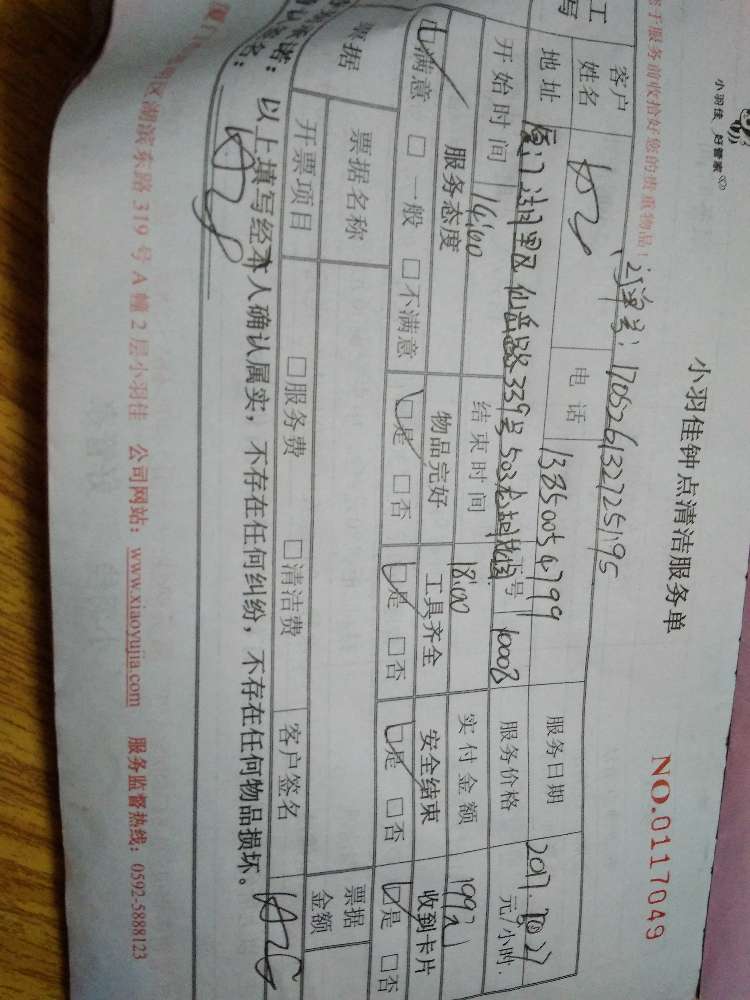 小羽佳 好管家
小羽佳钟点清洁服务单
NO.0117049
于服务前收拾好您的贵重物品!
订单号: 170526132725195
工
写
客户姓名
电话 13850054799
服务日期
地址 厦门湖里区仙岳路339号503
号 10008
服务价格 元/小时.
开始时间 14:00
结束时间 18:00
实付金额 199元
服务态度 物品完好 工具齐全 安全结束 收到卡片
☑满意 □一般 □不满意 ☑是 □否 ☑是 □否 ☑是 □否 ☑是 □否
票据
票据名称
票据金额
开票项目 □服务费 □清洁费 客户签名
以上填写经本人确认属实,不存在任何纠纷,不存在任何物品损坏。
签名:
区湖滨东路319号A幢2层小羽佳 公司网站: www.xiaoyujia.com 服务监督热线: 0592-5888123